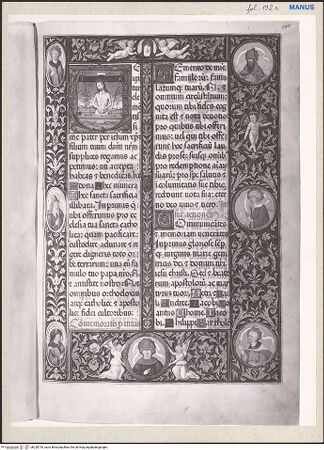 fol. 192r MANUS
me pater per iesum xpm
filium tuum dnm nrm
supplices rogamus ac
petimus: uti accepta
habeas et benedicas hec
dona. hec munera
hec sancta sacrificia
illibata. In primis q
tibi offerimus pro ec
clesia tua sancta catho
lica: quam pacificare:
custodire, adunare et re
gere digneris toto or
be terrarum: una cū fa
mulo tuo papa nro .N.
et antistite nostro .N. et
omnibus orthodoxis
atqz catholice et aposto
lice fidei cultoribus:
Memento dne
famulorū: famu
larumqz tuarū .N. et
omnium circūstātium:
quorum tibi fides cog
nita est et nota devotio
pro quibus tibi offeri
mus: vel qui tibi offe
runt hoc sacrificiū lau
dis pro se: suisqz omībz
pro redemptione aīarū
suarū: pro spe salutis et
icolumitatis sue tibiqz
reddunt vota sua: eter
no deo vivo et vero.
Infra actionē
Communicātes
et memoriam venerātes
In primis gloriose semp
qz virginis marie geni
tricis dei et domini nri
iesu christi. Sed et beato
rum apostolorū ac mar
tirum tuorū Petri et pauli
Andree. Iacobi. Io
annis Thome. Iaco
bi. Philippi Bartholo